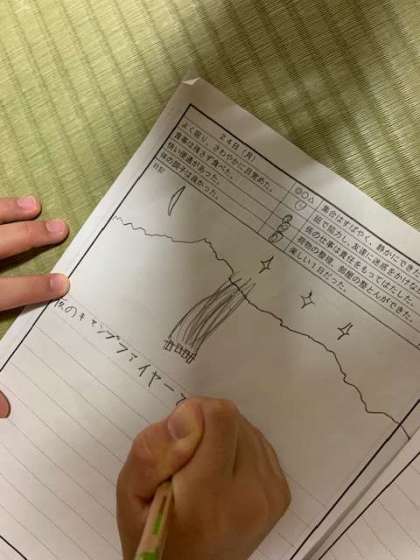 24日（月）
よく眠り、さわやかに目覚めた。
食事は残さず食べた。
快い便通があった。
体の調子は良かった。
◎○△
集合はすばやく、静かにでき
班で協力し、友達に迷惑をかけな
係の仕事は責任をもってはたした。
荷物の整理、部屋の整とんができた。
楽しい1日だった。
日記
夜のキャンプファイヤーで